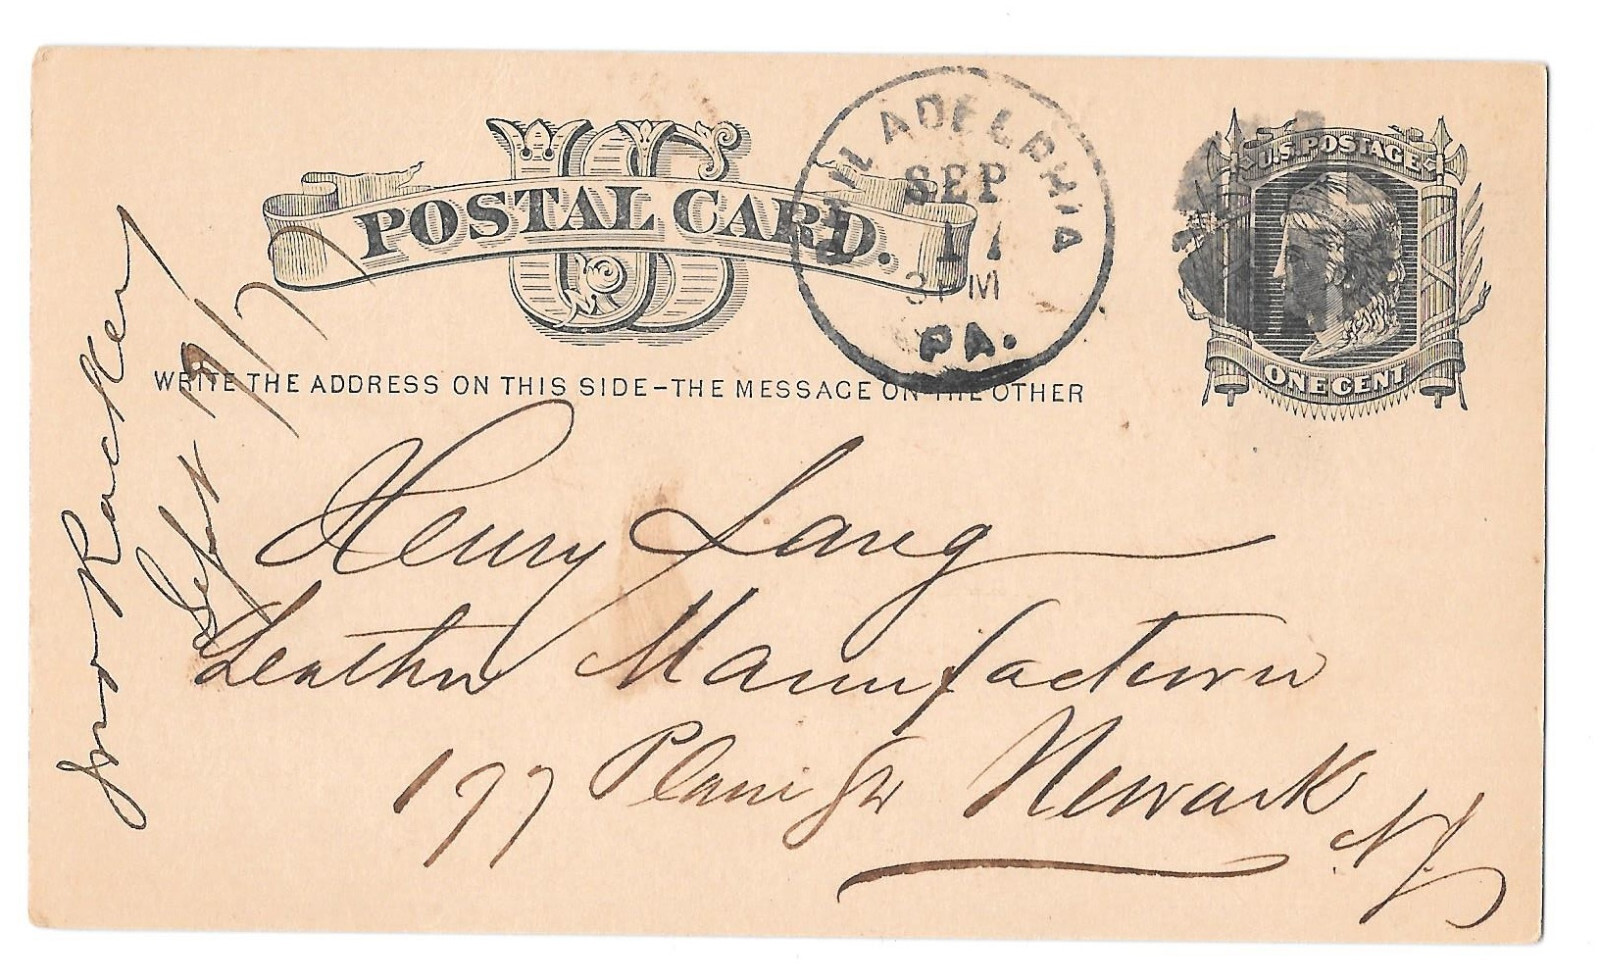 US
POSTAL CARD.
PHILADELPHIA
SEP
17
3 PM
PA.
U.S. POSTAGE
ONE CENT
WRITE THE ADDRESS ON THIS SIDE - THE MESSAGE ON THE OTHER
Henry Lang
Leather Manufacturer
177 Plain St Newark
NJ
Jno Rackers
Sept 17/77